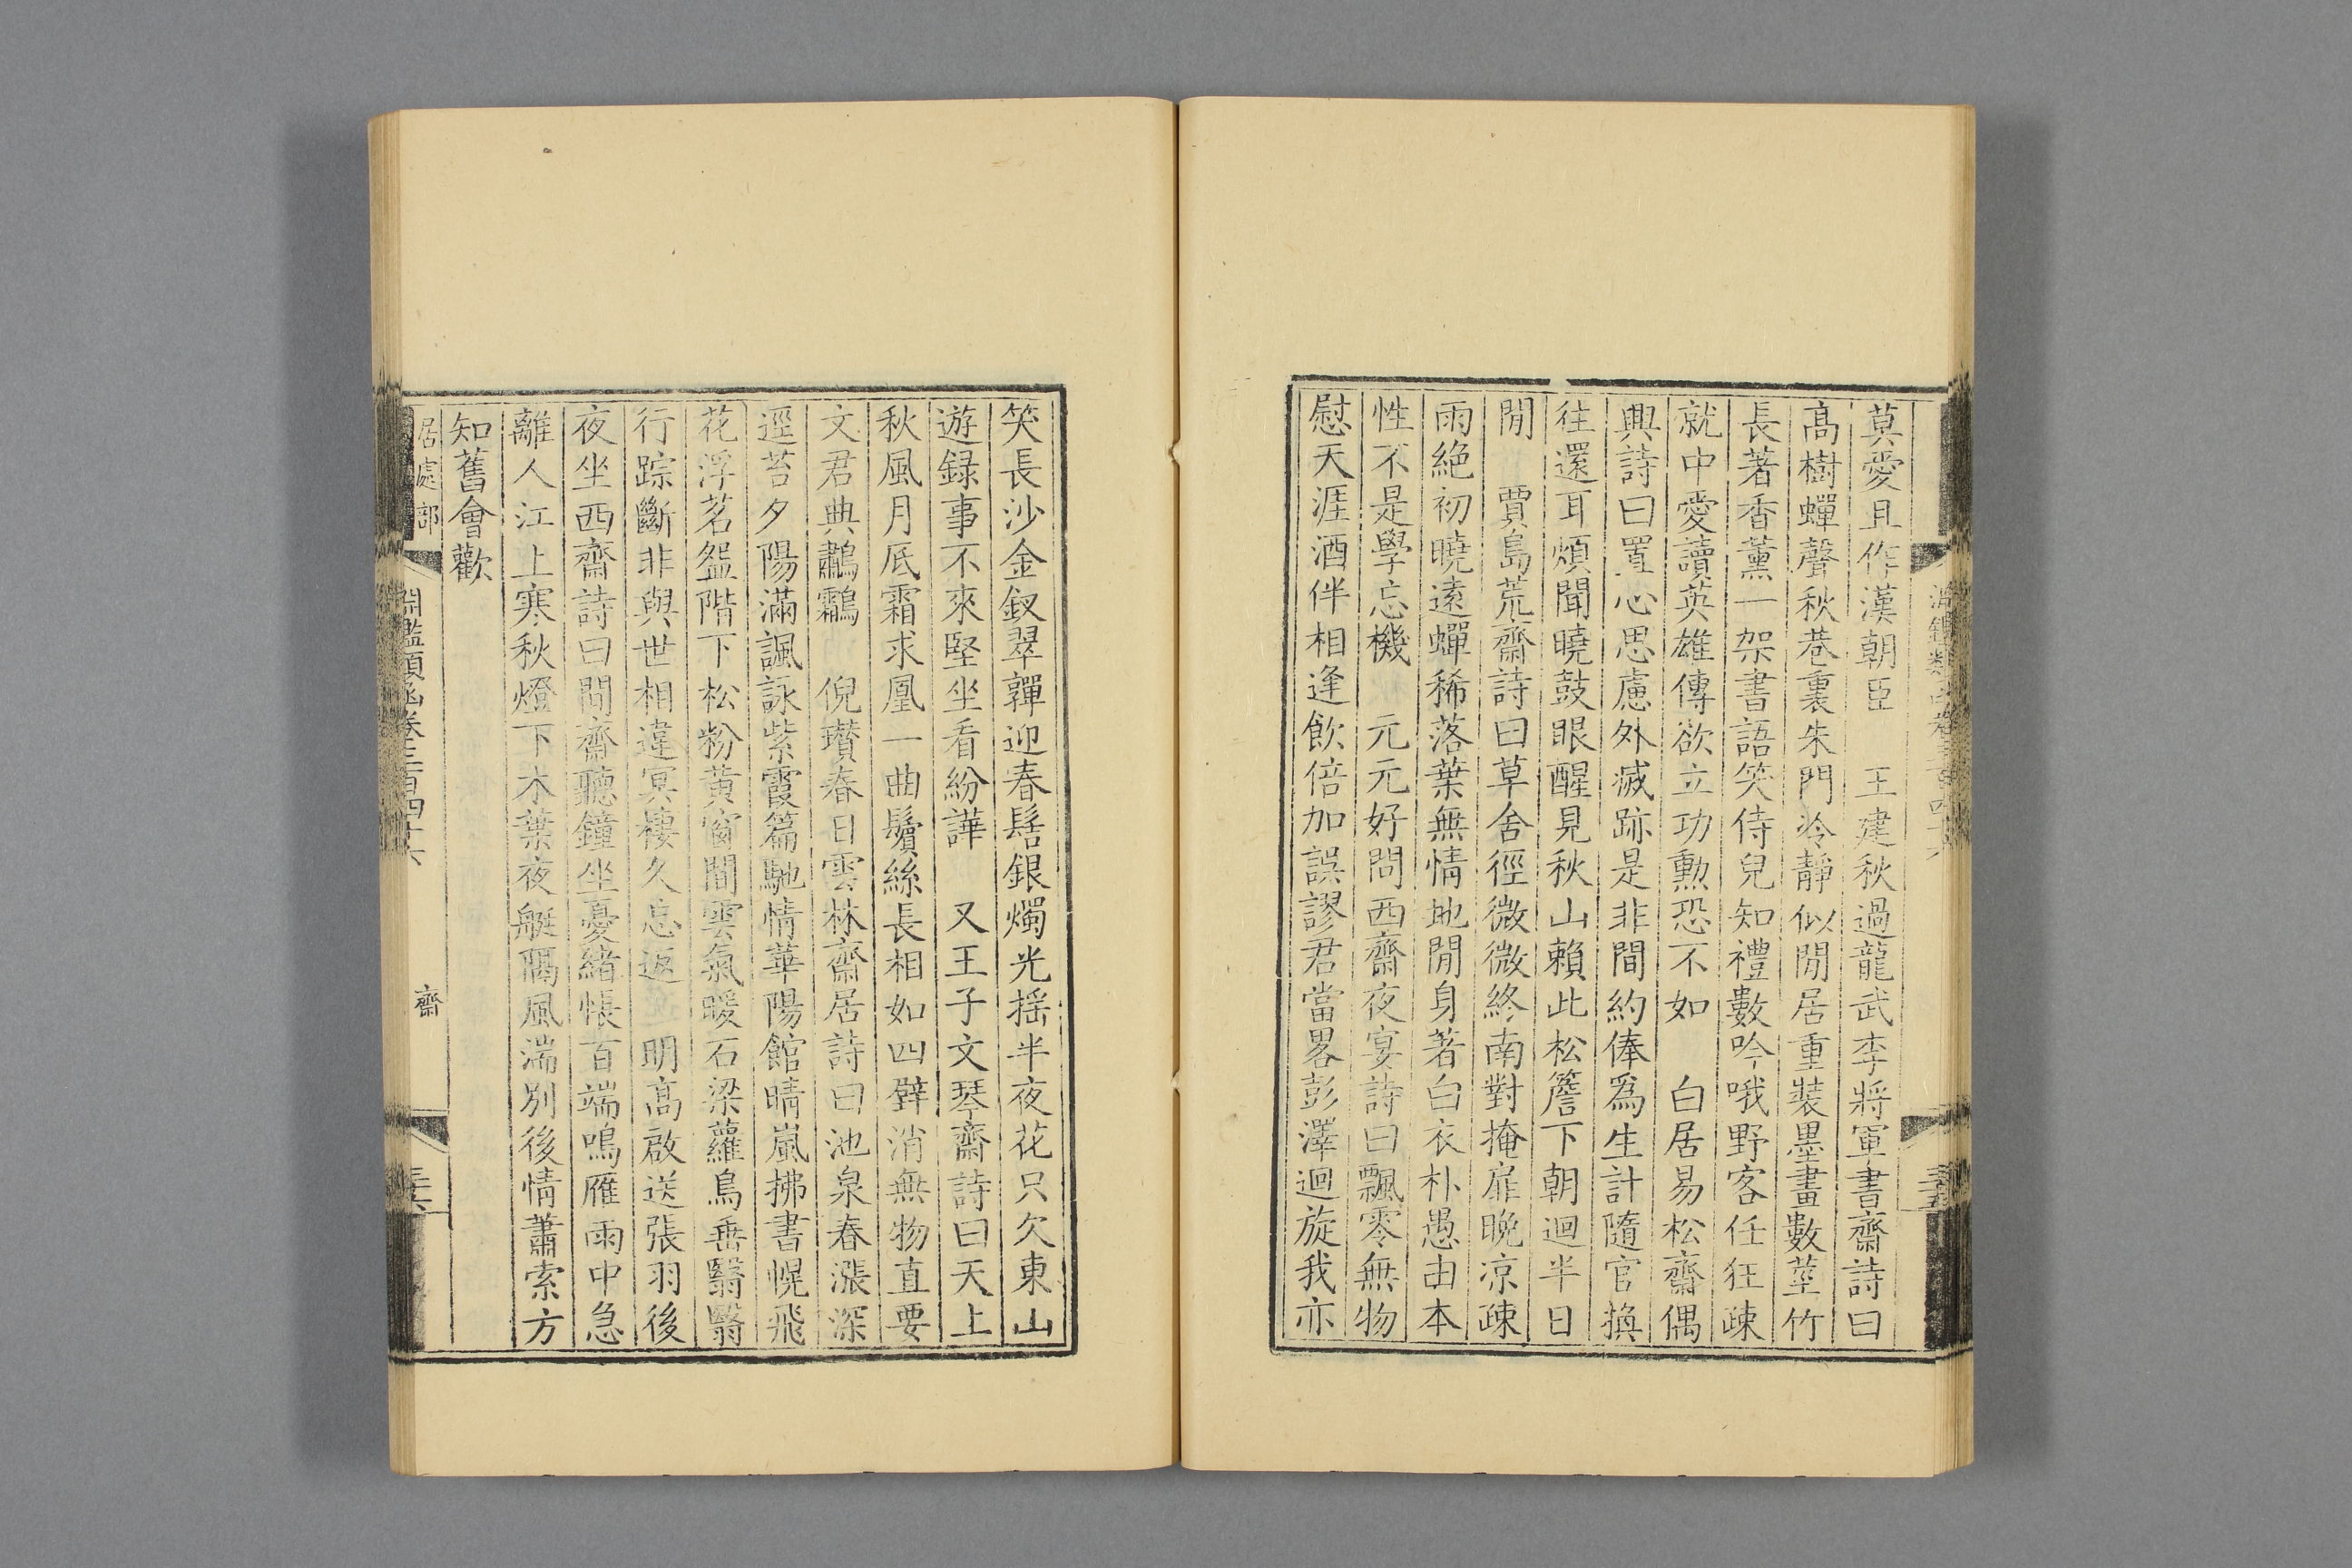 莫愛且作漢朝臣　王建秋過龍武李將軍書齋詩曰
高樹蟬聲秋巷裏朱門冷靜似閒居重裝墨畫數莖竹
長著香薰一架書語笑侍兒知禮數吟哦野客任狂疎
就中愛讀英雄傳欲立功勲恐不如　白居易松齋偶
興詩曰置心思慮外滅跡是非間約俸爲生計隨官換
往還耳煩聞曉鼓眼醒見秋山賴此松簷下朝迴半日
閒　賈島荒齋詩曰草舍徑微微終南對掩扉晚凉疎
雨絶初曉遠蟬稀落葉無情地閒身著白衣朴愚由本
性不是學忘機　元元好問西齋夜宴詩曰飄零無物
慰天涯酒伴相逢飲倍加誤謬君當畧彭澤迴旋我亦
笑長沙金釵翠嚲迎春髻銀燭光揺半夜花只欠東山
遊録事不來堅坐看紛譁　又王子文琴齋詩曰天上
秋風月底霜求凰一曲鬢絲長相如四壁消無物直要
文君典鷫鸘　倪瓚春日雲林齋居詩曰池泉春漲深
逕苔夕陽滿諷詠紫霞篇馳情華陽館晴嵐拂書幌飛
花浮茗盌階下松粉黄窗間雲氣暖石梁蘿鳥垂翳翳
行踪斷非與世相違冥棲久忘返　明高啟送張羽後
夜坐西齋詩曰閒齋聽鐘坐憂緒悵百端鳴雁雨中急
離人江上寒秋燈下木葉夜艇隔風湍別後情蕭索方
知舊會歡
居處部　淵鑑類函卷三百四十六　齋　三十六